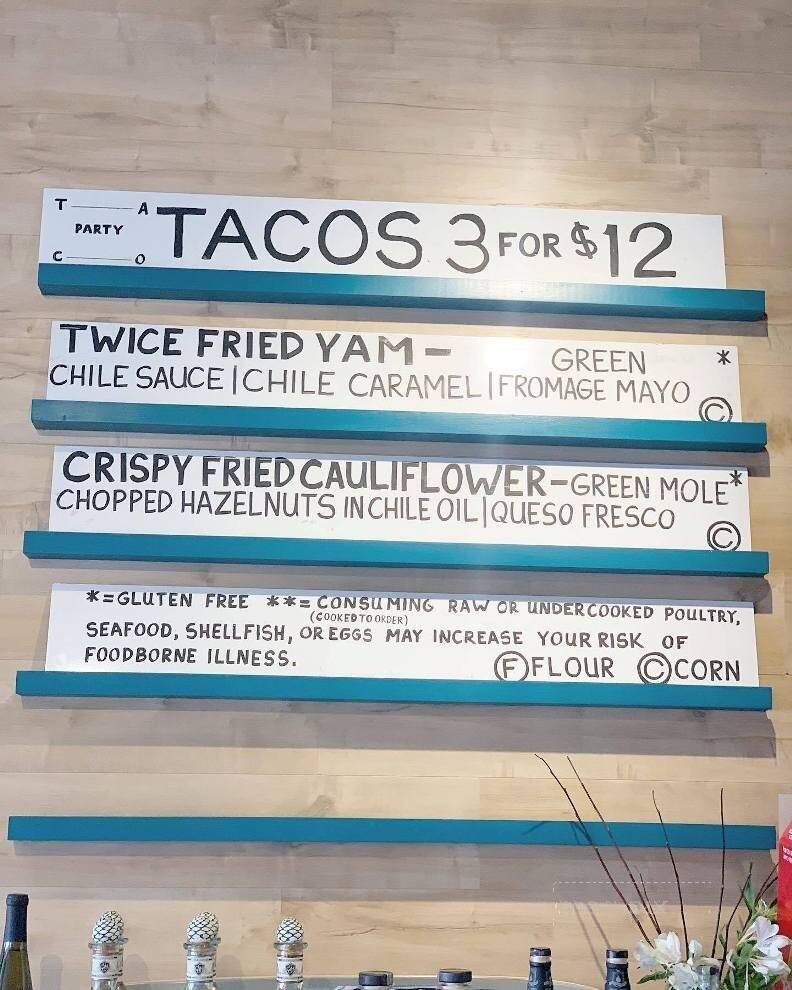 T A
PARTY
C O
TACOS 3 FOR $12
TWICE FRIED YAM- GREEN *
CHILE SAUCE | CHILE CARAMEL | FROMAGE MAYO
Ⓒ
CRISPY FRIED CAULIFLOWER-GREEN MOLE*
CHOPPED HAZELNUTS IN CHILE OIL | QUESO FRESCO
Ⓒ
*=GLUTEN FREE **= CONSUMING RAW OR UNDERCOOKED POULTRY,
(COOKED TO ORDER)
SEAFOOD, SHELLFISH, OR EGGS MAY INCREASE YOUR RISK OF
FOODBORNE ILLNESS.
ⒻFLOUR ⒸCORN